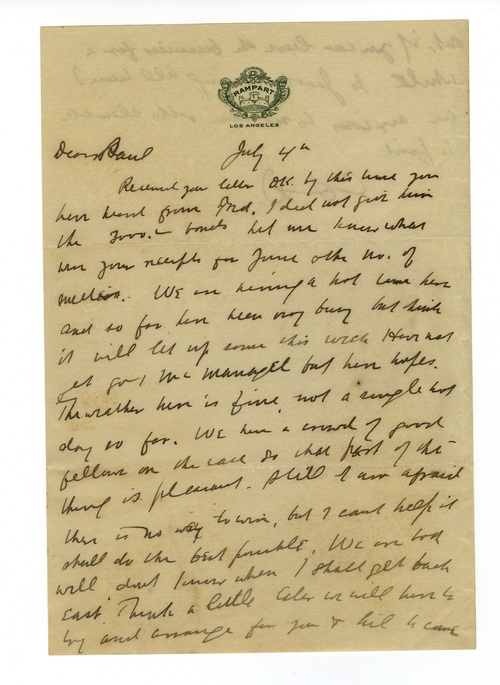 RAMPART
LOS ANGELES
Dear Paul July 4th
Received your letter O.K. by this time you
have heard from Fred. I did not give him
the 3000.- bonds let me know what
were your receipts for June & the no. of
We are having a hot time here
and so far have been very busy but think
it will let up some this week Have not
yet got McManagel but have hopes.
The weather here is fine not a single hot
day so far. We have a crowd of good
fellows on the case so that part of the
thing is pleasant. Still I am afraid
there is no way to win, but I cant help it
shall do the best possible. We are both
well dont know when I shall get back
east. Think a little later we will have to
try and arrange for you & to come